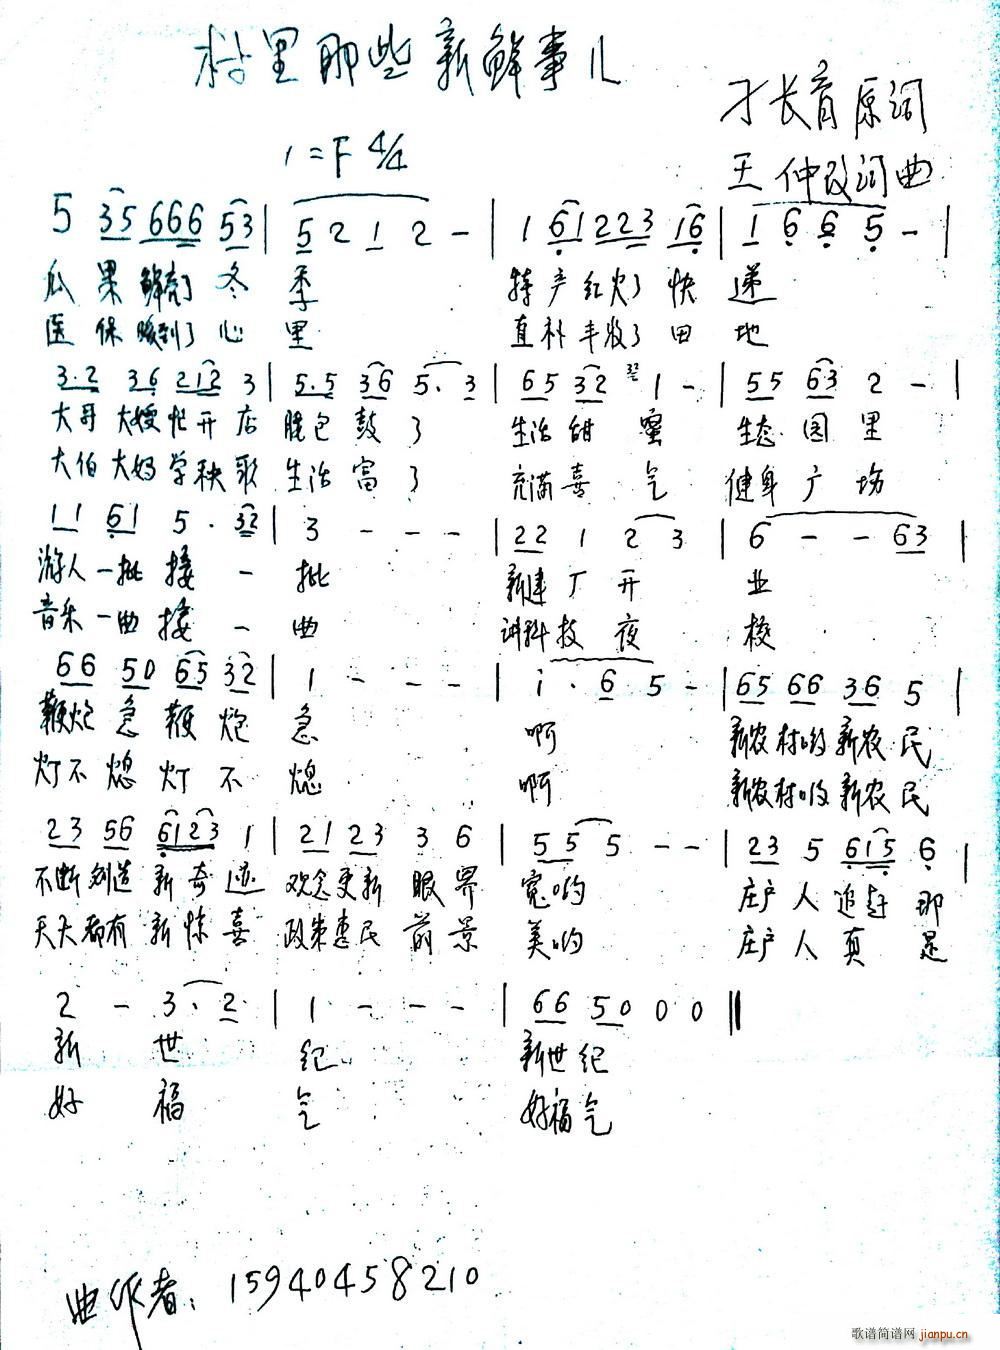 村里那些新鲜事儿
才长育原词
1=F 4/4
王仲改词曲
5 35 666 53 | 5 2 1 2 - | 1 61 223 16 | 1 6 6 5 - |
瓜果鲜亮了冬季 特产红火了快递
医保暖到了心里 直补丰收了田地
3.2 36 212 3 | 5.5 36 5.3 | 65 32 1 - | 55 63 2 - |
大哥大嫂忙开店 腰包鼓了 生活甜蜜 生态园里
大伯大妈学秧歌 生活富了 充满喜气 健身广场
11 61 5. 32 | 3 - - - | 22 1 2 3 | 6 - - 63 |
游人一批接一批 新建厂开业
音乐一曲接一曲 讲科技夜校
66 50 65 32 | 1 - - - | i. 6 5 - | 65 66 36 5 |
鞭炮急鞭炮急 啊 新农村哟新农民
灯不熄灯不熄 啊 新农村哟新农民
23 56 6123 1 | 21 23 3 6 | 55 5 - - | 23 5 615 6 |
不断创造新奇迹 观念更新眼界宽哟 庄户人追赶那
天天都有新惊喜 政策惠民前景美哟 庄户人真是
2 - 3. 2 | 1 - - - | 66 50 0 0 ‖
新世纪 新世纪
好福气 好福气
曲作者:15940458210
歌谱简谱网 jianpu.cn